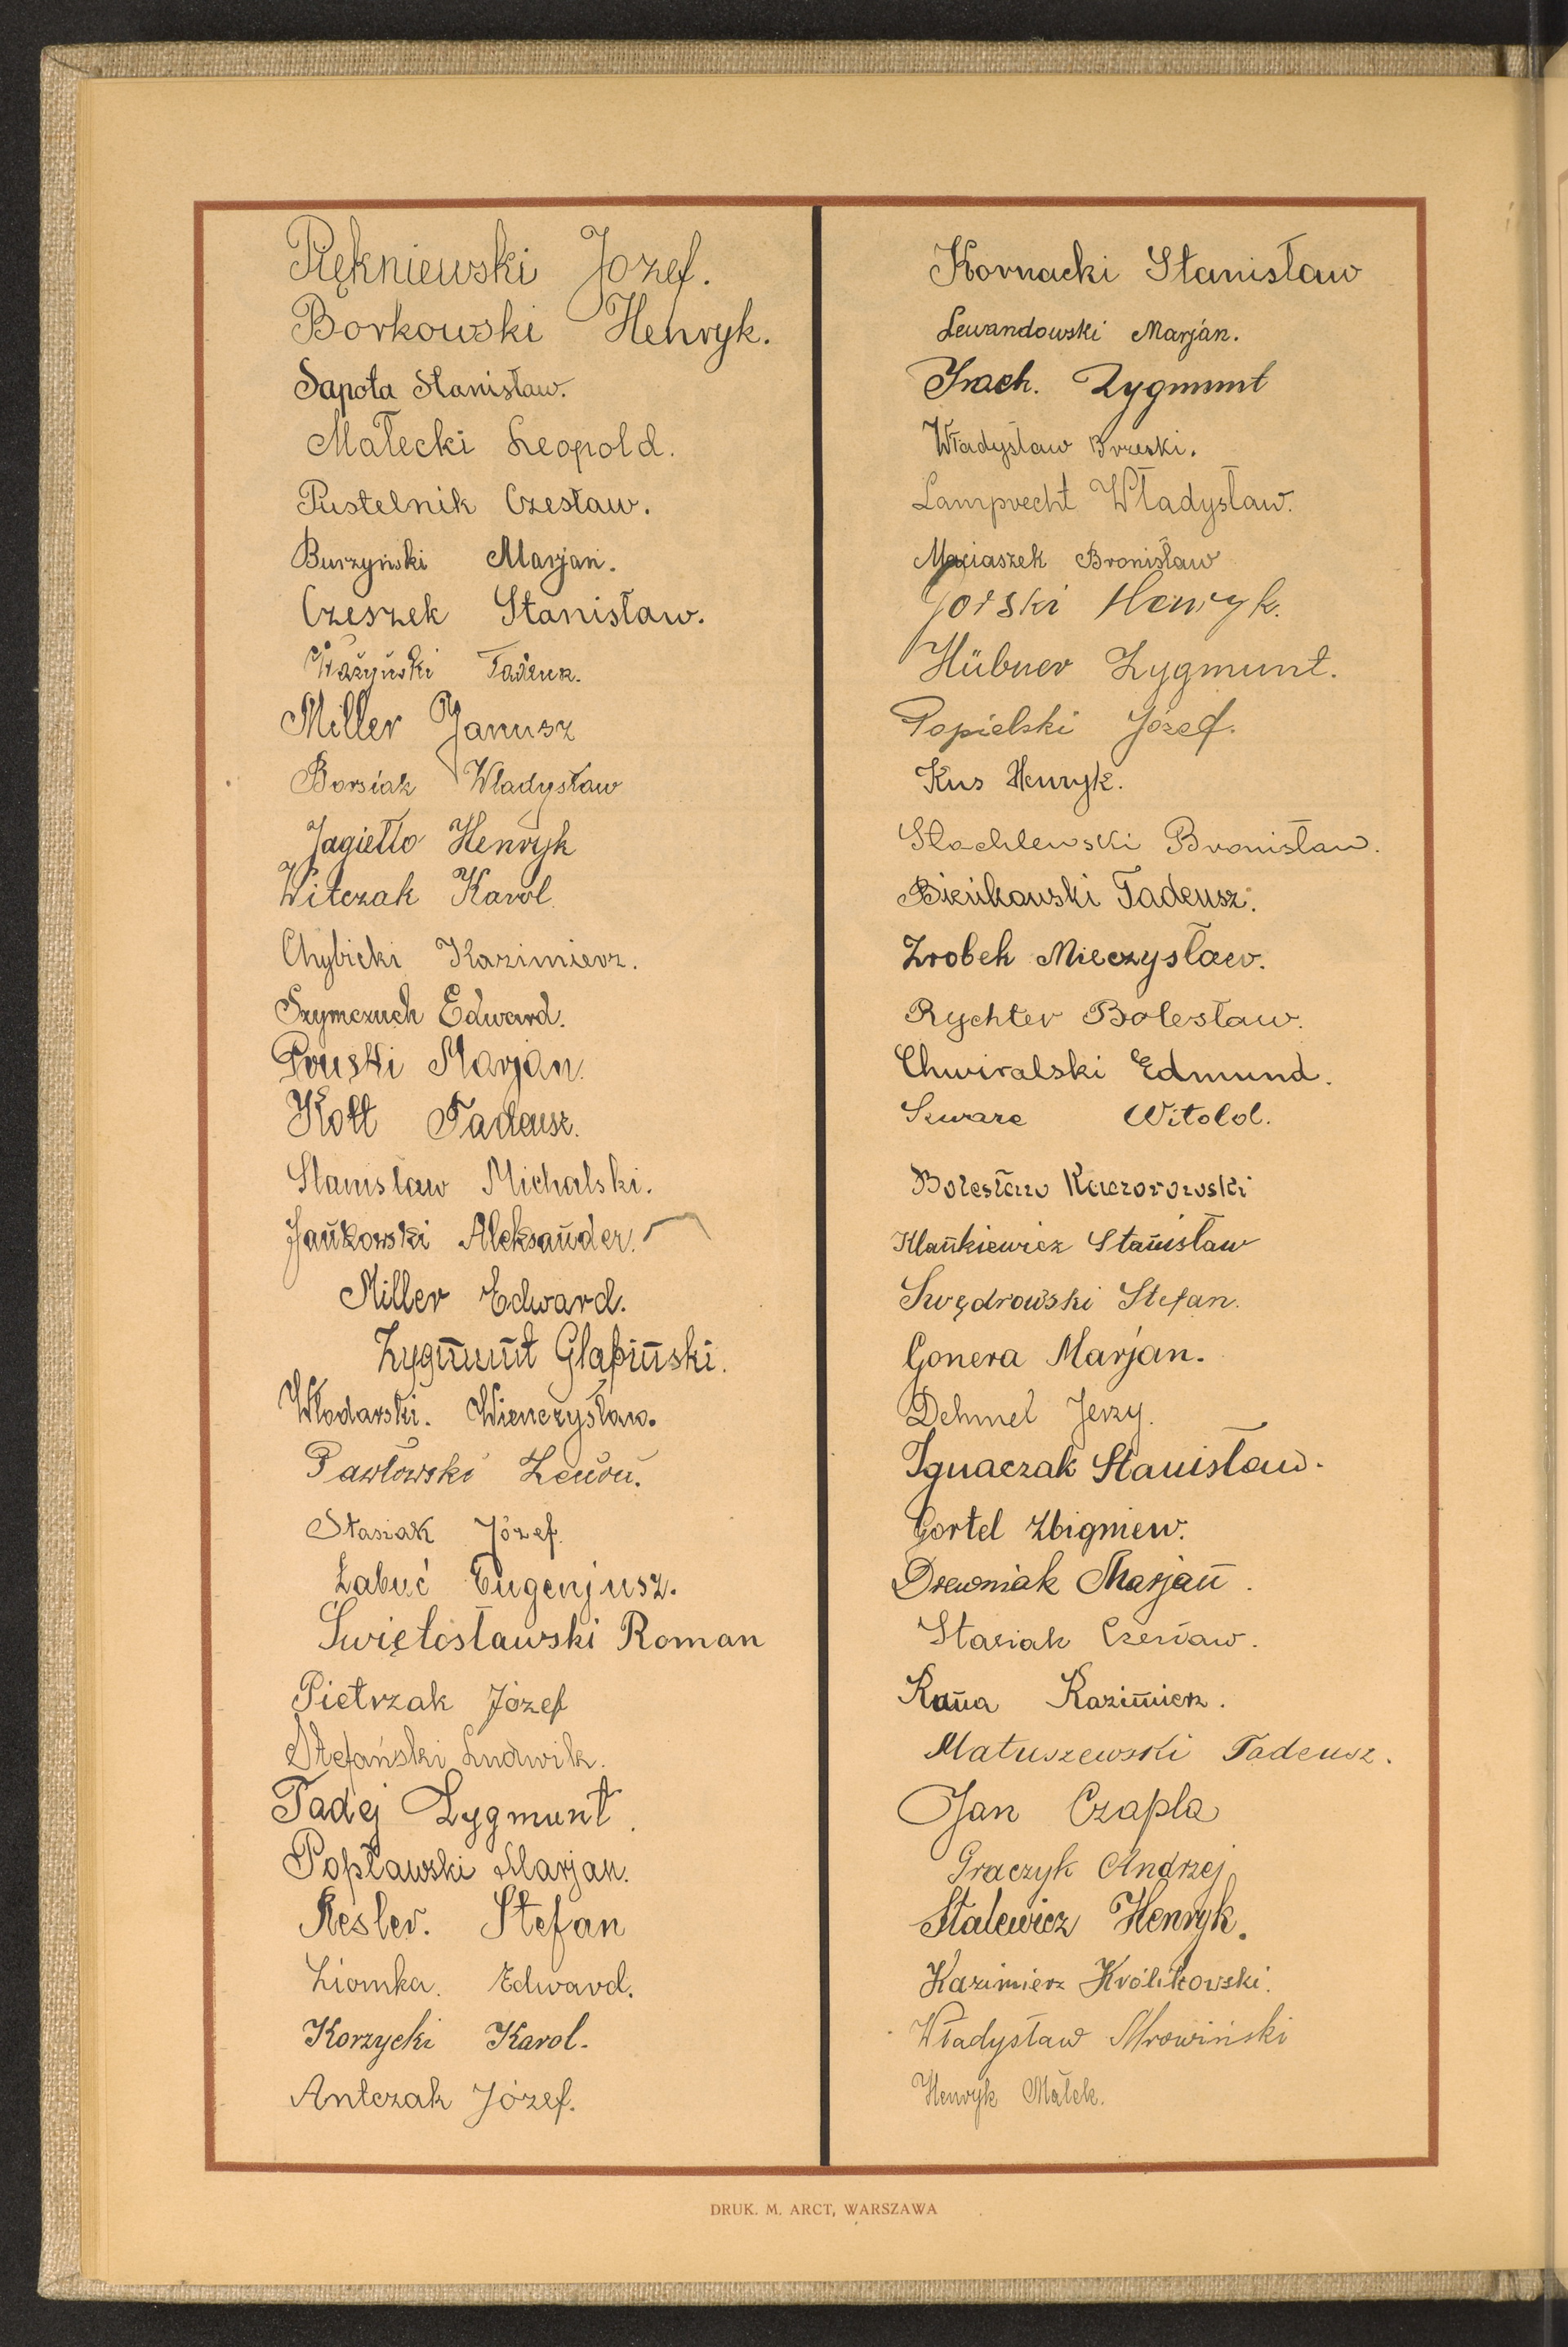 Piękniewski Józef.
Borkowski Henryk.
Sapota Stanisław.
Małecki Leopold.
Pustelnik Czesław.
Burzyński Marjan.
Czeszek Stanisław.
Ważyński Tadeusz.
Miller Janusz
Borsiak Władysław
Jagiełło Henryk
Witczak Karol.
Chybicki Kazimierz.
Szymczuch Edward.
Pruski Marjan.
Kott Tadeusz.
Stanisław Michalski.
Jańkowski Aleksander.
Miller Edward.
Zygmunt Glapiński.
Włodarski. Wieńczysław.
Pawłowski Zenon.
Stasiak Józef.
Łabuć Eugenjusz.
Świętosławski Roman
Pietrzak Józef
Stefański Ludwik.
Tadej Zygmunt.
Popławski Marjan.
Resler. Stefan
Ziomka. Edward.
Korzycki Karol.
Antczak Józef.
Kornacki Stanisław
Lewandowski Marjan.
Zygmunt
Władysław Brzeski.
Lamprecht Władysław.
Maciaszek Bronisław
Górski Henryk.
Hübner Zygmunt.
Popielski Józef.
Kus Henryk.
Stachlewski Bronisław.
Bieńkowski Tadeusz.
Zrobek Mieczysław.
Rychter Bolesław.
Chwiralski Edmund.
Szwarc Witold.
Bolesław Kaczorowski
Klankiewicz Stanisław
Swędrowski Stefan.
Gonera Marjan.
Dehmel Jerzy.
Ignaczak Stanisław.
Gortel Zbigniew.
Drewniak Marjan.
Stasiak Czesław.
Kania Kazimierz.
Matuszewski Tadeusz.
Jan Czapla
Graczyk Andrzej
Stalewicz Henryk.
Kazimierz Królikowski.
Władysław Mrowiński
Henryk Małek.
DRUK. M. ARCT, WARSZAWA